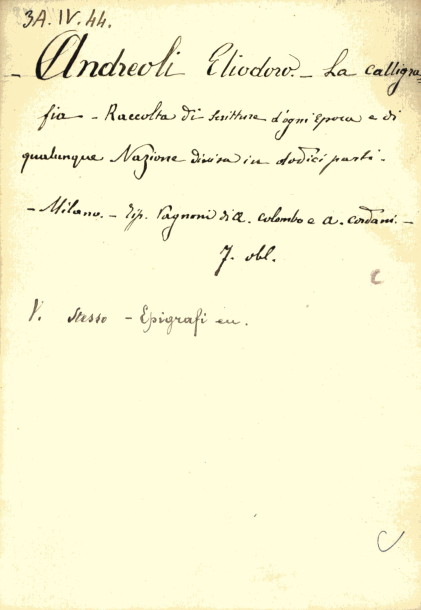 3A.IV.44.
- Andreoli Eliodoro. - La calligra-
fia - Raccolta di Scritture d'ogni epoca e di
qualunque Nazione divisa in dodici parti -
- Milano. - Tip. Pagnoni di A. Colombo e A. Cordani. -
f. obl.
V. Stesso - Epigrafi